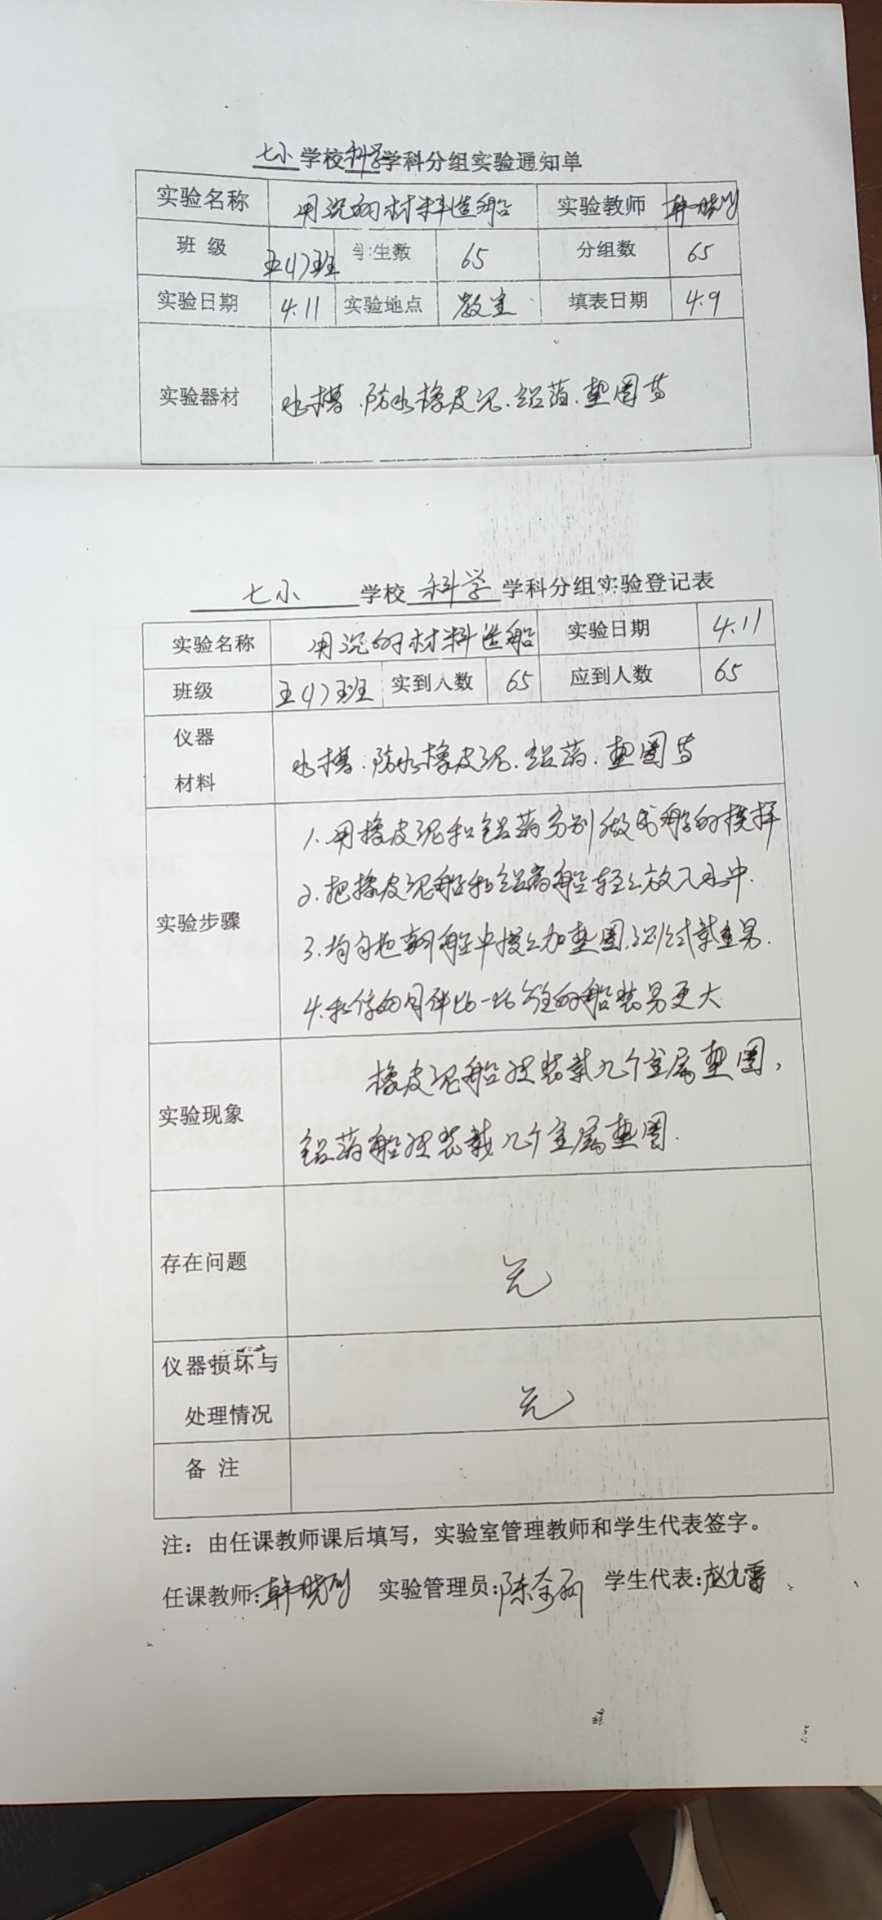 七小学校科学学科分组实验通知单
实验名称 用沉的材料造船 实验教师 韩晓刚
班 级 五(1)班 学生数 65 分组数 65
实验日期 4.11 实验地点 教室 填表日期 4.9
实验器材 水槽.防水橡皮泥.铝箔.垫圈等
七小 学校 科学 学科分组实验登记表
实验名称 用沉的材料造船 实验日期 4.11
班级 五(1)班 实到人数 65 应到人数 65
仪器
材料 水槽.防水橡皮泥.铝箔.垫圈等
实验步骤
1.用橡皮泥和铝箔分别做成船的模样
2.把橡皮泥船和铝箔船轻轻放入水中.
3.均匀地朝船中慢慢加垫圈,测试载重量.
4.和你的同伴比一比谁的船装易更大
实验现象
橡皮泥船 装载几个金属垫圈,
铝箔船 装载几个金属垫圈.
存在问题 无
仪器损坏与
处理情况 无
备 注
注：由任课教师课后填写，实验室管理教师和学生代表签字。
任课教师:韩晓刚 实验管理员:陈 学生代表:赵